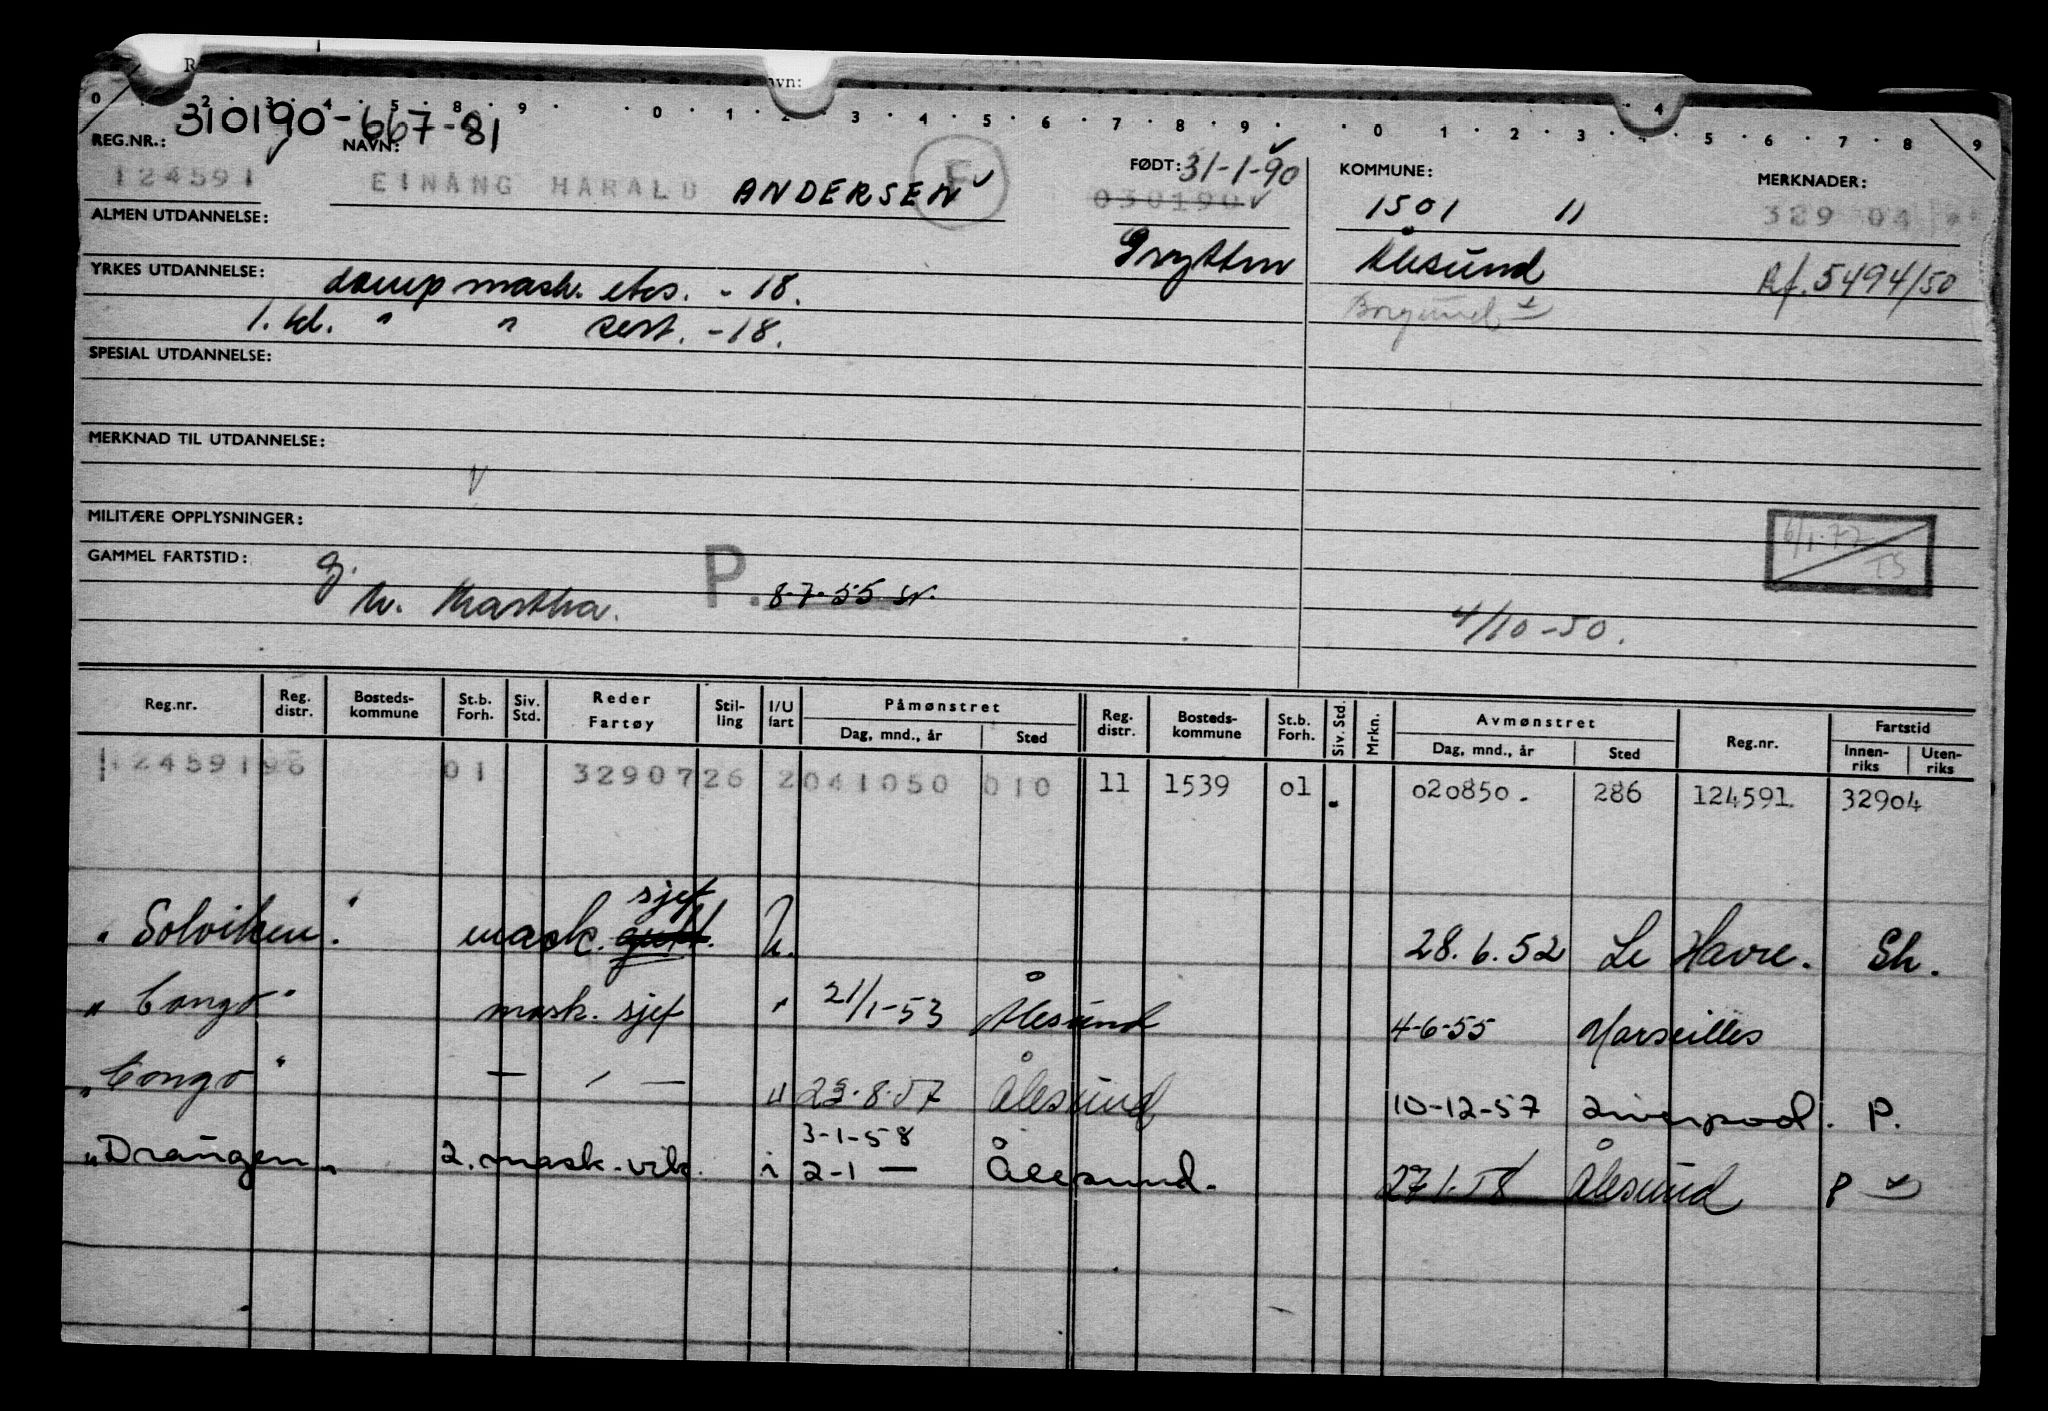 R
avn:
0 2 3 4 5 8 9 0 1 2 3 4 5 6 7 8 9 0 1 2 3 4 5 6 7 8 9
310190-667-81
REG.NR.: NAVN: FØDT: 31-1-90 KOMMUNE: MERKNADER:
124591 EINANG HARALD ANDERSEN F 030190 1501 11 329 04
ALMEN UTDANNELSE: Grytten Ålesund Rf. 5494/50
YRKES UTDANNELSE: damp mask. eks. - 18. Borgund
1. kl. " " sert. - 18.
SPESIAL UTDANNELSE:
MERKNAD TIL UTDANNELSE:
MILITÆRE OPPLYSNINGER: 6/1-77 TS
GAMMEL FARTSTID: g.
m. Martha. P. 8-7-55 sr. 4/10-50.
Reg.nr. Reg. distr. Bosteds-kommune St.b. Forh. Siv. Std. Reder Fartøy Stil-ling I/U fart Påmønstret Dag, mnd., år Sted Reg. distr. Bosteds-kommune St.b. Forh. Siv. Std. Mrkn. Avmønstret Dag, mnd., år Sted Reg.nr. Fartstid Innen-riks Uten-riks
12459196 01 3290726 2041050 010 11 1539 01 . 020850. 286 124591 32904
sjef
"Solviken". mask. U. 28.6.52 Le Havre. Sh.
"Congo" mask. sjef " 21/1-53 Ålesund 4-6-55 Marseilles
"Congo" — / — " 23.8.57 Ålesund 10-12-57 Liverpool. P.
3-1-58
"Draugen" 2. mask. vik. i 2-1 — Ålesund. 27/1.58 Ålesund P